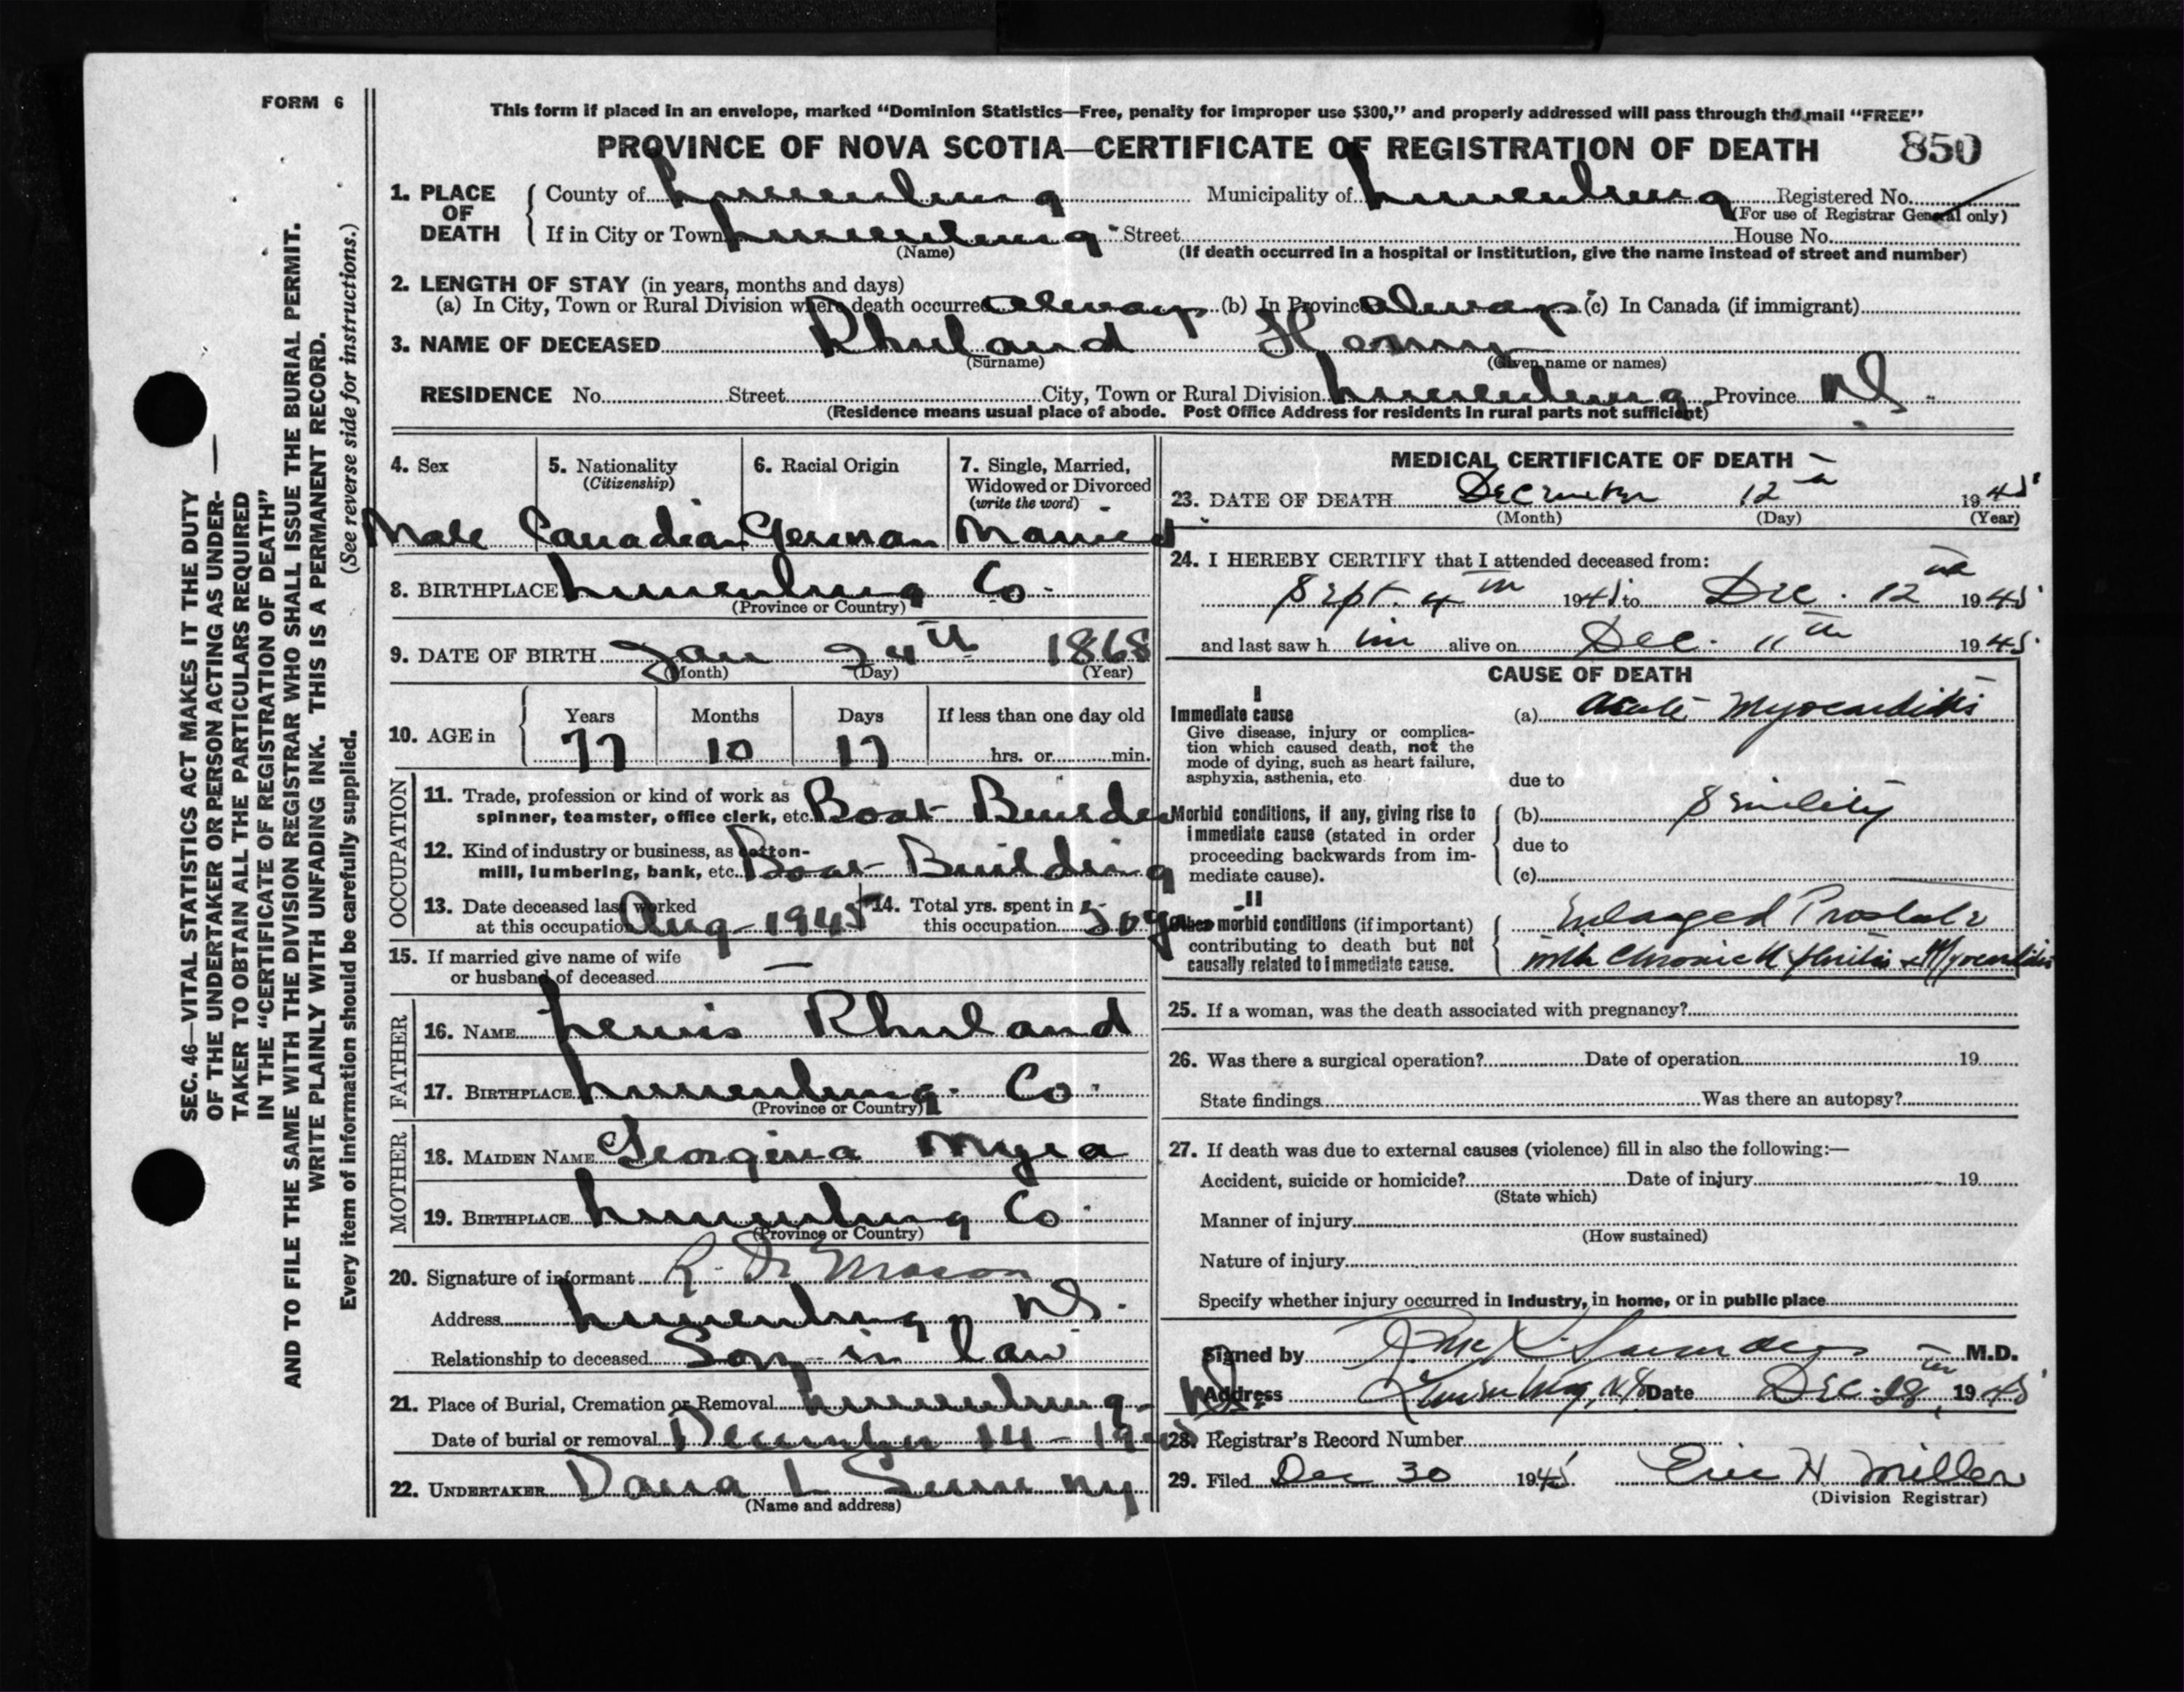 FORM 6
This form if placed in an envelope, marked “Dominion Statistics—Free, penalty for improper use $300,” and properly addressed will pass through the mail “FREE”
PROVINCE OF NOVA SCOTIA—CERTIFICATE OF REGISTRATION OF DEATH 850
1. PLACE OF DEATH County of Lunenburg Municipality of Lunenburg Registered No.
(For use of Registrar General only)
If in City or Town Lunenburg Street House No.
(Name) (If death occurred in a hospital or institution, give the name instead of street and number)
2. LENGTH OF STAY (in years, months and days)
(a) In City, Town or Rural Division where death occurred always (b) In Province always (c) In Canada (if immigrant)
3. NAME OF DECEASED Rhuland Henry
(Surname) (Given name or names)
RESIDENCE No. Street City, Town or Rural Division Lunenburg Province NS
(Residence means usual place of abode. Post Office Address for residents in rural parts not sufficient)
4. Sex 5. Nationality (Citizenship) 6. Racial Origin 7. Single, Married, Widowed or Divorced (write the word)
Male Canadian German Married
8. BIRTHPLACE Lunenburg Co.
(Province or Country)
9. DATE OF BIRTH Jan 24th 1868
(Month) (Day) (Year)
10. AGE in Years Months Days If less than one day old
77 10 17 hrs. or min.
OCCUPATION
11. Trade, profession or kind of work as
spinner, teamster, office clerk, etc. Boat Builder
12. Kind of industry or business, as cotton-
mill, lumbering, bank, etc. Boat Building
13. Date deceased last worked
at this occupation Aug - 1945
14. Total yrs. spent in
this occupation 50 y
15. If married give name of wife
or husband of deceased —
FATHER
16. NAME Lewis Rhuland
17. BIRTHPLACE Lunenburg Co.
(Province or Country)
MOTHER
18. MAIDEN NAME Georgina Myra
19. BIRTHPLACE Lunenburg Co.
(Province or Country)
20. Signature of informant Mason
Address Lunenburg NS.
Relationship to deceased Son in law
21. Place of Burial, Cremation or Removal Lunenburg - NS.
Date of burial or removal December 14 - 1945
22. UNDERTAKER Dana L Sweeny
(Name and address)
MEDICAL CERTIFICATE OF DEATH
23. DATE OF DEATH December 12th 1945
(Month) (Day) (Year)
24. I HEREBY CERTIFY that I attended deceased from:
Sept. 4th 1945 to Dec. 12th 1945
and last saw h im alive on Dec. 11th 1945
CAUSE OF DEATH
I
Immediate cause
Give disease, injury or complica-
tion which caused death, not the
mode of dying, such as heart failure,
asphyxia, asthenia, etc.
(a) Acute Myocarditis
due to
Morbid conditions, if any, giving rise to
immediate cause (stated in order
proceeding backwards from im-
mediate cause).
(b) Senility
due to
(c)
II
Other morbid conditions (if important)
contributing to death but not
causally related to immediate cause.
Enlarged Prostate
with Chronic Nephritis & Myocarditis
25. If a woman, was the death associated with pregnancy?
26. Was there a surgical operation? Date of operation 19
State findings Was there an autopsy?
27. If death was due to external causes (violence) fill in also the following:—
Accident, suicide or homicide? Date of injury 19
(State which)
Manner of injury
(How sustained)
Nature of injury
Specify whether injury occurred in industry, in home, or in public place
Signed by Saunders M.D.
Address Lunenburg, N.S. Date Dec. 28th, 1945
28. Registrar's Record Number
29. Filed Dec 30 1945 Eric H Miller
(Division Registrar)
SEC. 46—VITAL STATISTICS ACT MAKES IT THE DUTY
OF THE UNDERTAKER OR PERSON ACTING AS UNDER-
TAKER TO OBTAIN ALL THE PARTICULARS REQUIRED
IN THE “CERTIFICATE OF REGISTRATION OF DEATH”
AND TO FILE THE SAME WITH THE DIVISION REGISTRAR WHO SHALL ISSUE THE BURIAL PERMIT.
WRITE PLAINLY WITH UNFADING INK. THIS IS A PERMANENT RECORD.
Every item of information should be carefully supplied. (See reverse side for instructions.)